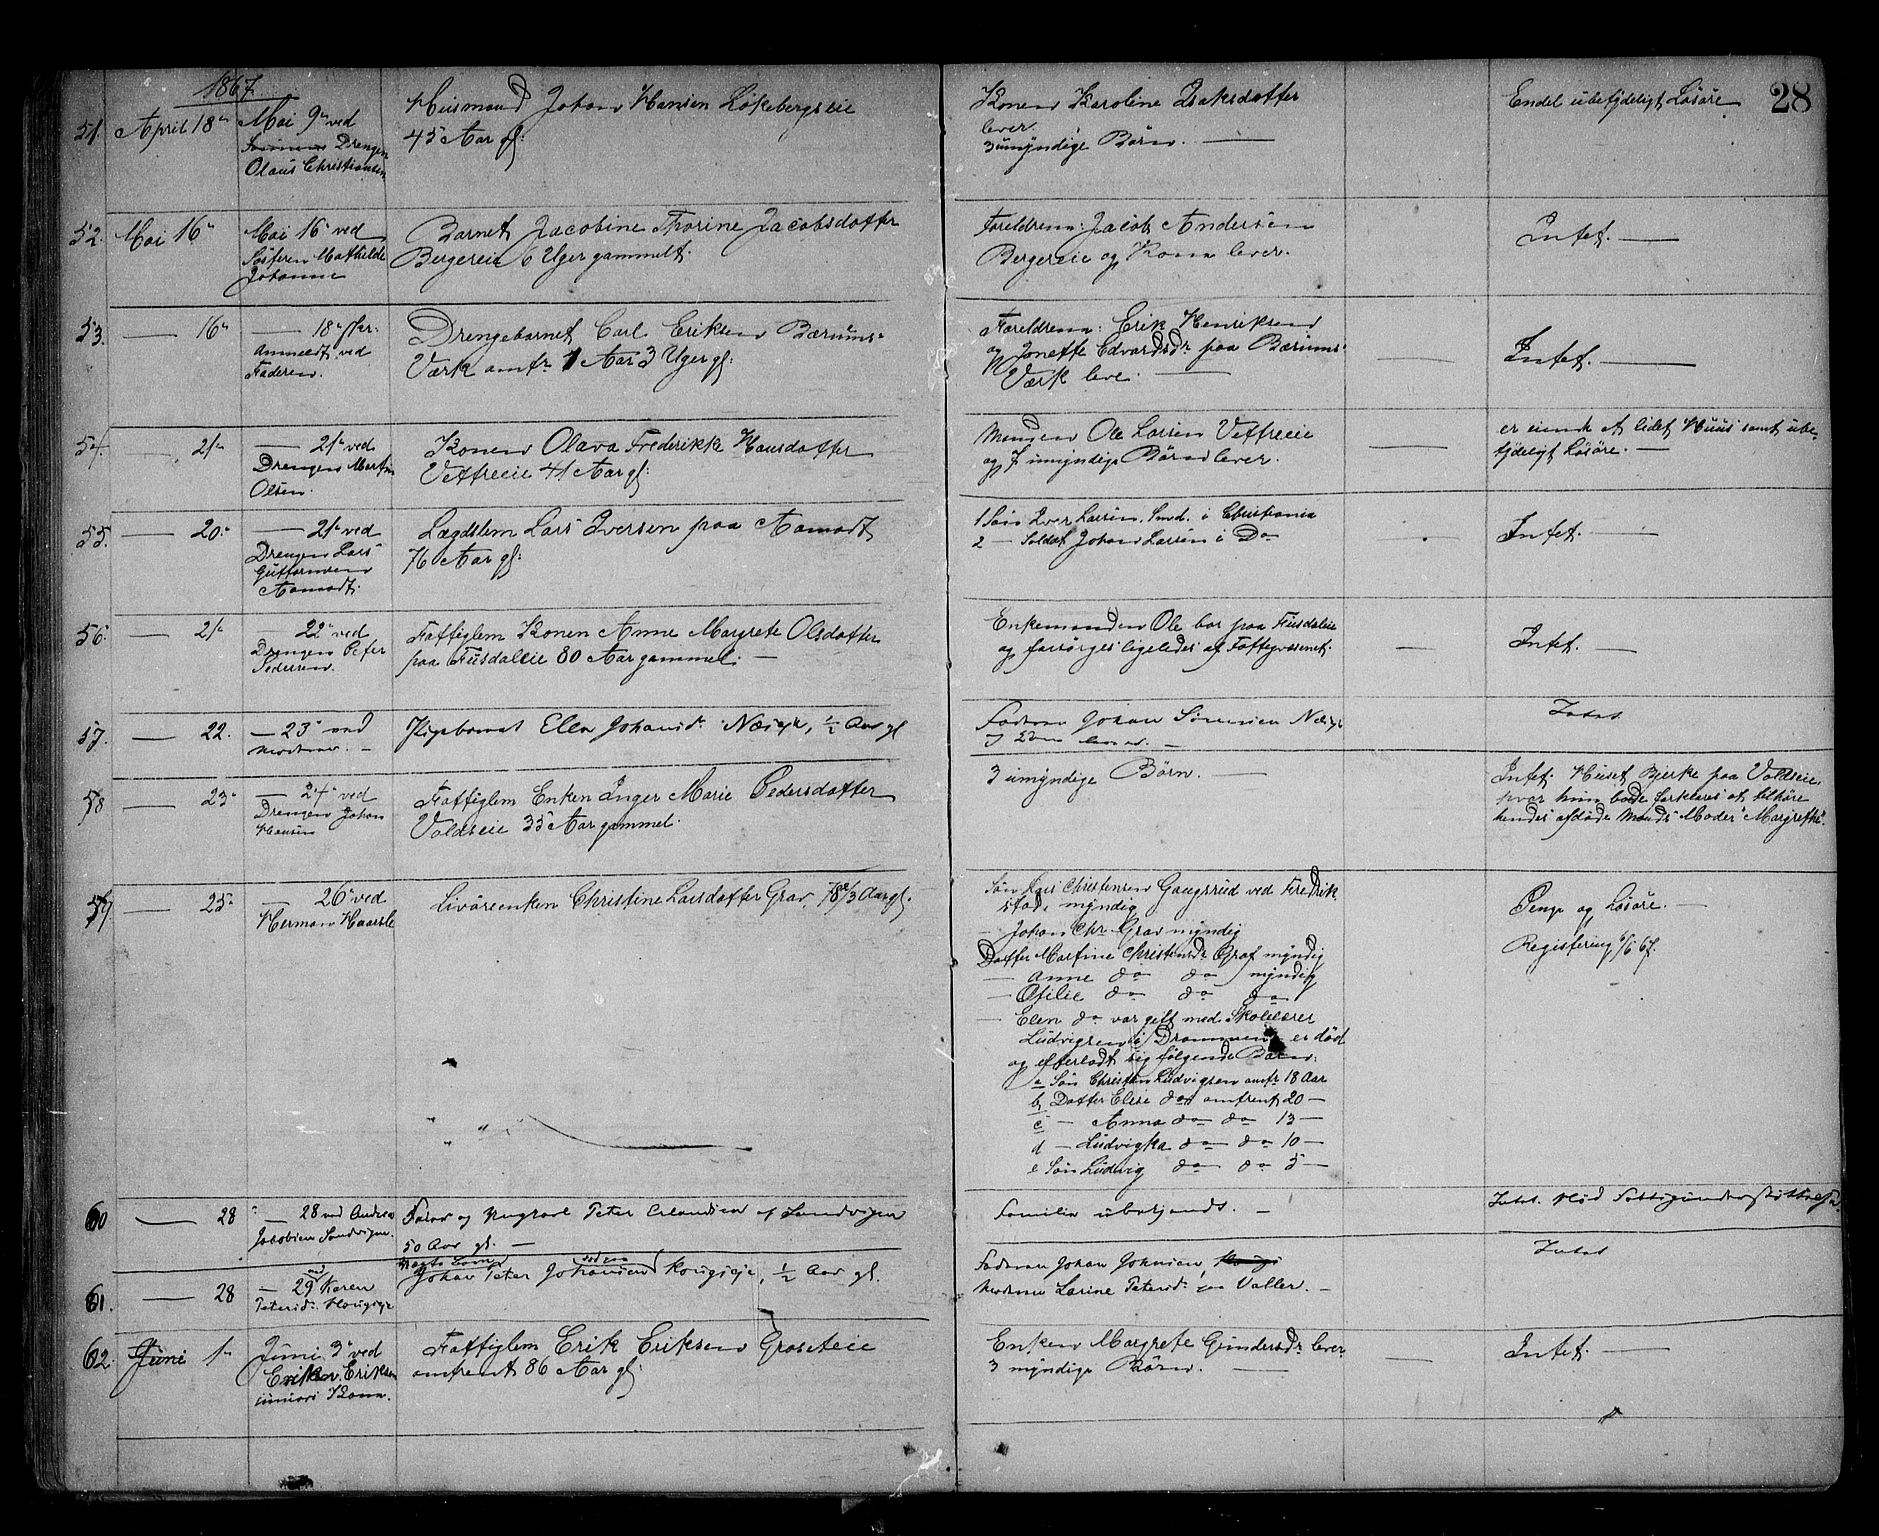 28
1867.
51. April 18de Mai 9de ved
Drengen
Olaus Christiansen
Huusmand Johan Hansen Lökebergseie
45 Aar gl:
Konen Karoline Isaksdatter
lever.
3 umyndige Börn. —
Endel ubetydeligt Lösöre
52. Mai 16de
Mai 16de ved
Söstren Mathilde
Johanne
Barnet Jacobine Thorine Jacobsdatter
Bergereie 6 Uger gammelt.
Foreldrene: Jacob Andersen
Bergereie og Kone lever.
Intet. —
53. — 16de
— 18de
Anmeldt ved
Faderen.
Drengebarnet Carl Eriksen Bærums-
Værk omtr 1 Aar 3 Uger gl:
Foreldrene: Erik Henriksen
og Jonette Edvardsdr paa Bærums-
Værk leve. —
—
Intet. —
54. — 21de
— 21de ved
Drengen Martin
Olsen.
Konen Olava Frederikke Hansdatter
Vettreeie 41 Aar gl:
Manden Ole Larsen Vettreeie
og 7 umyndige Börn lever.
—
er eiende et lidet Huus samt ube-
tydeligt Lösöre. —
55. — 20de
— 21de ved
Drengen Lars
Guttormsen
Aamodt.
Lægdslem Lars Iversen paa Aamodt
76 Aar gl:
1 Sön Iver Larsen, Smd. i Christiania
2 — Soldat Johan Larsen i Do
Intet. —
56. — 21de
22de ved
Drengen Peter
Pedersen.
Fattiglem Konen Anne Margrete Olsdatter
paa Fusdaleie 80 Aar gammel. —
Enkemanden Ole bor paa Fusdaleie
og forsörges ligeledes af Fattigvæsenet.
—
Intet. —
57. — 22.
— 23de ved
Moderen. —
Pigebarnet Ellen Johansdr Næseie, ½ Aar gl
Faderen Johan Simensen
lever. —
Intet
58 — 23de
— 24de ved
Drengen Johan
Hansen
Fattiglem Enken Inger Marie Pedersdatter
Voldseie 35 Aar gammel.
3 umyndige Börn. —
Intet. Huset Bjerke paa Voldseie,
hvor hun boede forklares at tilhöre
hendes afdöde Mands Moder Margrethe.
59 — 25de
— 26de ved
Herman Haarsle
Livöreenken Christine Larsdatter Grav, 78 2/3 Aar gl.
Sön Lars Christensen Gaugsrud ved Fredrik-
stad, myndig
— Johan Chr. Grav myndig
Datter Martine Christensdr Graf myndig
— Anne do do myndig
— Otilie do do do
— Elen do var gift med Skolelærer
Ludvigsen i Drammen, er död
og efterladt sig fölgende Börn:
a Sön Christian Ludvigsen omtr 18 Aar
b Datter Elise do omtrent 20 —
c — Anna do do 13 —
d — Ludvigka do do 10 —
e Sön Ludvig do do 5 —
Penge og Lösöre. —
Registering 6/6 67.
60 — 28
— 28 ved Andreas
Jacobsen Sandvigen.
Peter Erlandsen af Sandvigen
50 Aar gl. —
Familie ubekjendt. —
Intet. Nöd Fattigunderstöttelse.
61. — 28
— 29 ved Karen
Petersdr
Johan Peter Johansen, ½ Aar gl.
Faderen Johan Johnsen,
Moderen Larine Petersdr paa Valler. —
Intet
62. Juni 1de
Juni 3de ved
Erik Eriksen
juniors Kone.
Fattiglem Erik Eriksen Groseteie
omtrent 86 Aar gl:
Enken Margrete Gundersdr lever
3 myndige Börn. —
—
Intet. —